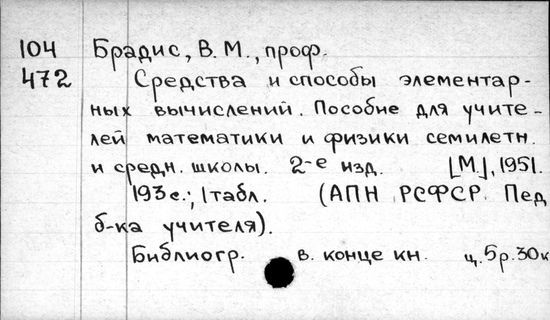 104 Брадис, В. М., проф.
472 Средства и способы элементар-
ных вычислений. Пособие для учите-
лей математики и физики семилетн.
и средн. школы. 2-е изд. [М.], 1951.
193 с.; 1 табл. (АПН РСФСР. Пед.
б-ка учителя).
Библиогр. в. конце кн. ц. 5 р. 30 к